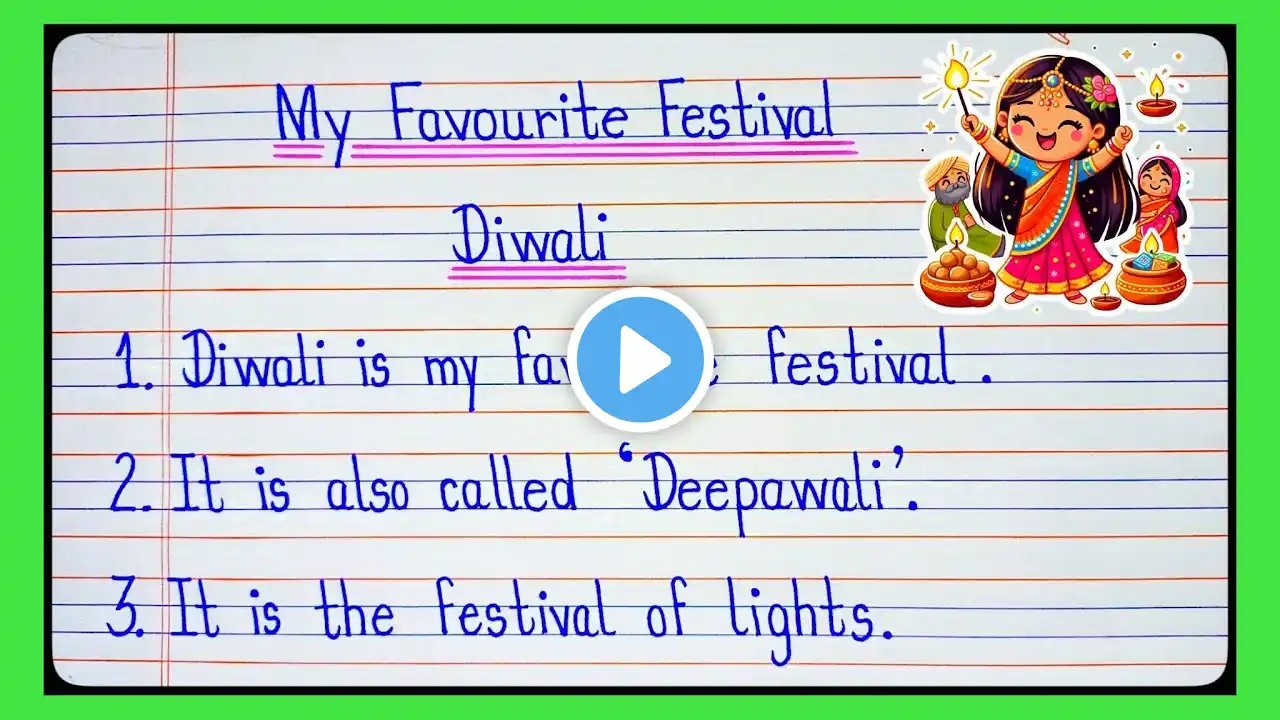 My Favourite Festival
Diwali
1. Diwali is my festival.
2. It is also called ‘Deepawali’.
3. It is the festival of lights.